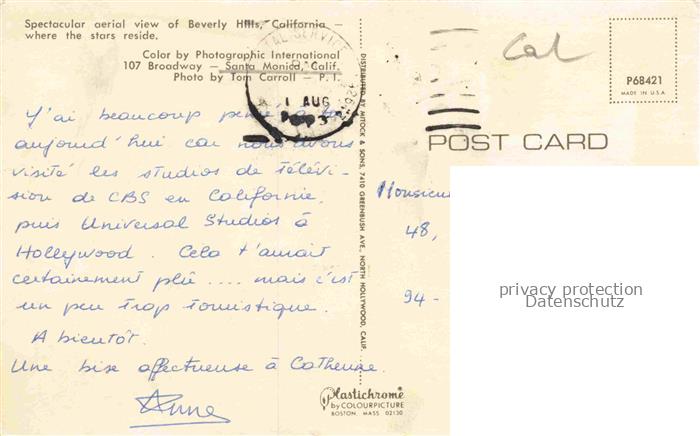 Spectacular aerial view of Beverly Hills, California –
where the stars reside.
Color by Photographic International
107 Broadway – Santa Monica, Calif.
Photo by Tom Carroll – P. I.
1 AUG
Cal
P68421
MADE IN U.S.A
POST CARD
J'ai beaucoup pensé à toi
aujourd'hui car nous avons
visité les studios de télévi-
sion de CBS en Californie,
puis Universal Studios à
Hollywood. Cela t'aurait
certainement plû .... mais c'est
un peu trop touristique.
A bientôt.
Une bise affectueuse à Catherine.
Anne
DISTRIBUTED BY MITOCK & SONS, 7410 GREENBUSH AVE., NORTH HOLLYWOOD, CALIF.
Monsieur
48,
94 -
privacy protection
Datenschutz
Plastichrome
by COLOURPICTURE
BOSTON, MASS 02130